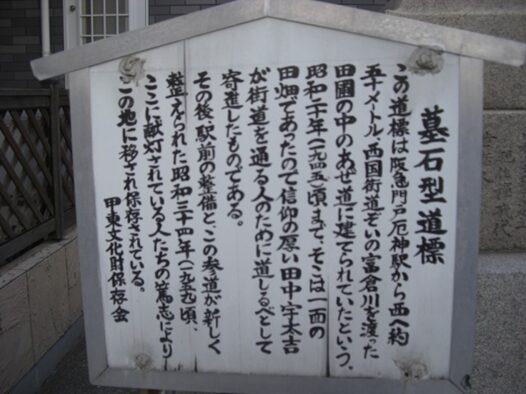 墓石型道標
この道標は阪急門戸厄神駅から西へ約
五十メートル、西国街道ぞいの富倉川を渡った
田園の中のあぜ道に建てられていたという。
昭和二十年(一九四五)頃まで、そこは一面の
田畑であったので信仰の厚い田中宇太吉
が街道を通る人のために道しるべとして
寄進したものである。
その後、駅前の整備と、この参道が新しく
整えられた昭和三十四年(一九五九)頃、
ここに献灯されている人たちの篤志により
この地に移され保存されている。
甲東文化財保存会